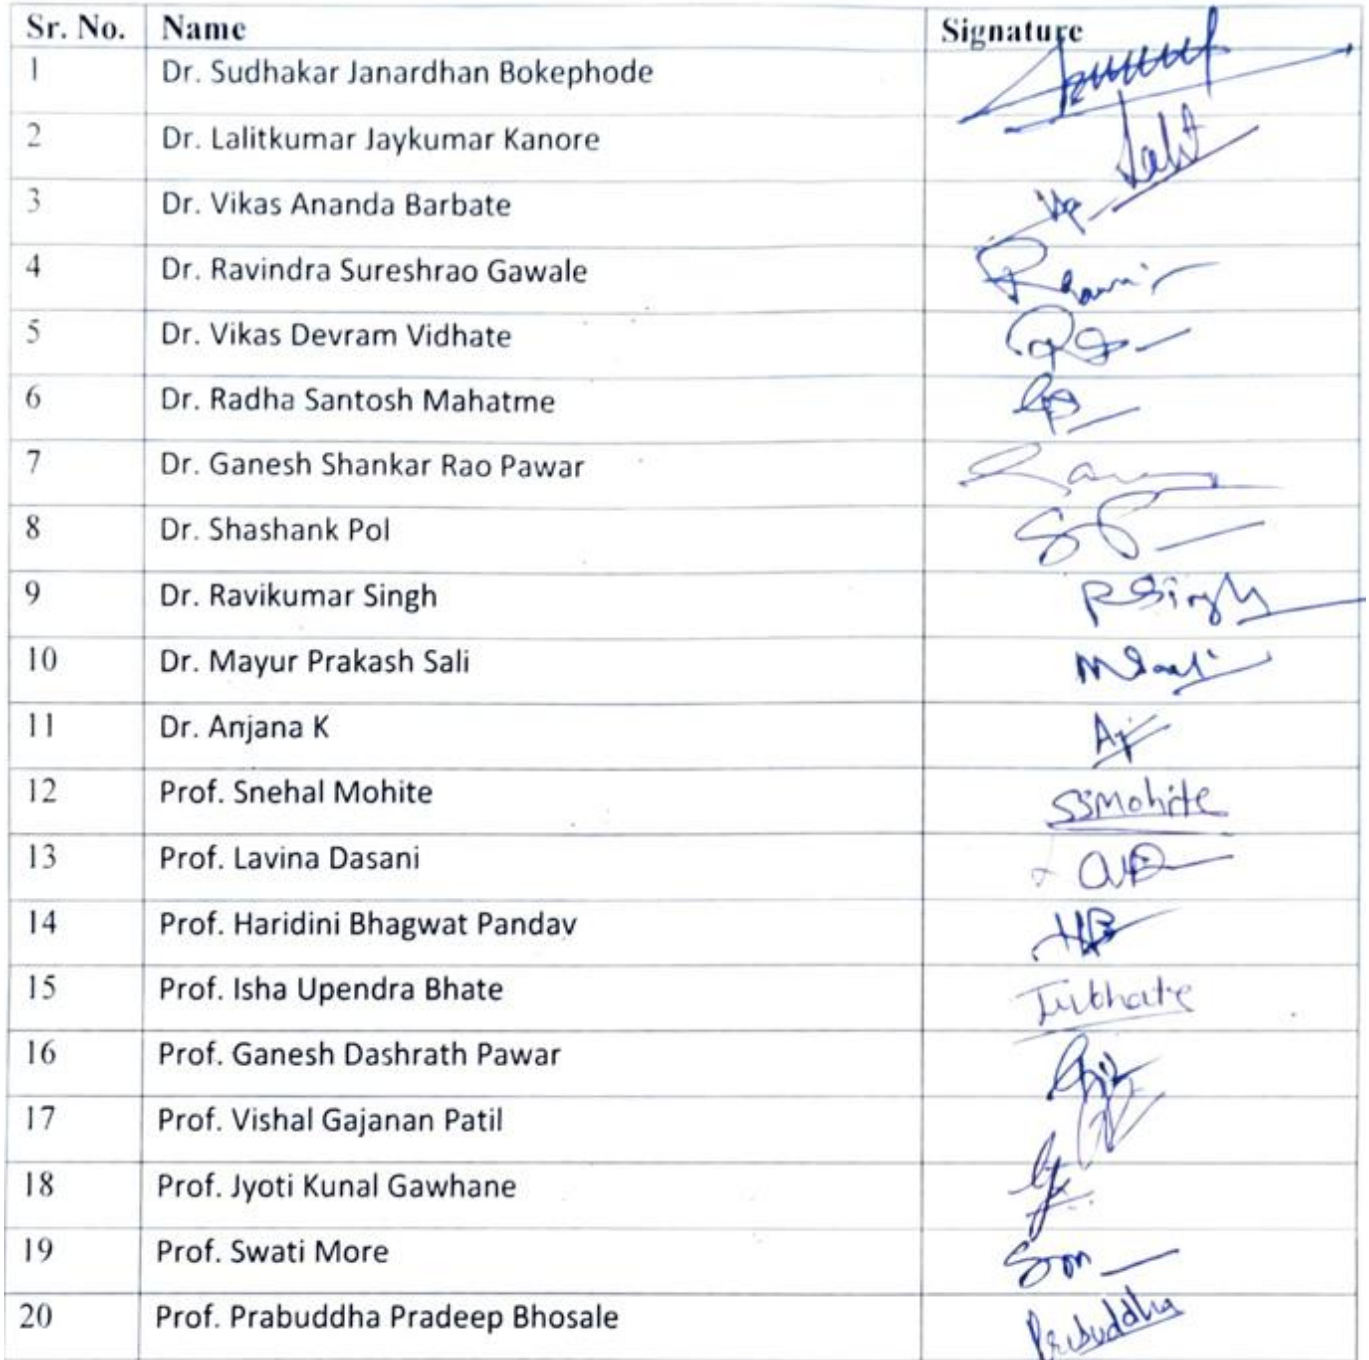 Sr. No. Name Signature
1 Dr. Sudhakar Janardhan Bokephode
2 Dr. Lalitkumar Jaykumar Kanore Lalit
3 Dr. Vikas Ananda Barbate
4 Dr. Ravindra Sureshrao Gawale
5 Dr. Vikas Devram Vidhate
6 Dr. Radha Santosh Mahatme
7 Dr. Ganesh Shankar Rao Pawar
8 Dr. Shashank Pol
9 Dr. Ravikumar Singh RSingh
10 Dr. Mayur Prakash Sali
11 Dr. Anjana K
12 Prof. Snehal Mohite SSMohite
13 Prof. Lavina Dasani
14 Prof. Haridini Bhagwat Pandav
15 Prof. Isha Upendra Bhate IUBhate
16 Prof. Ganesh Dashrath Pawar
17 Prof. Vishal Gajanan Patil
18 Prof. Jyoti Kunal Gawhane
19 Prof. Swati More
20 Prof. Prabuddha Pradeep Bhosale Prabuddha